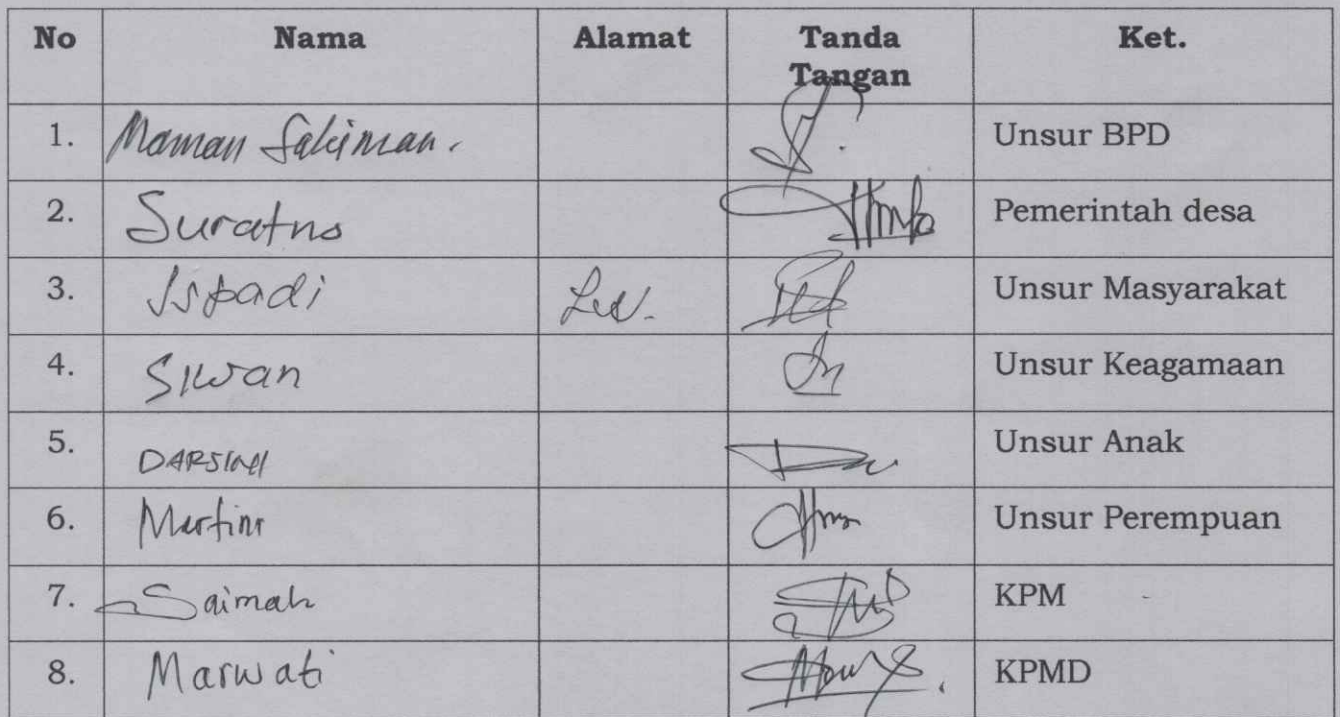 No Nama Alamat Tanda Tangan Ket.
1. Maman Sakiman. Unsur BPD
2. Suratno Pemerintah desa
3. Ispadi Unsur Masyarakat
4. Siwan Unsur Keagamaan
5. Unsur Anak
6. Martini Unsur Perempuan
7. Saimah KPM
8. Marwati KPMD